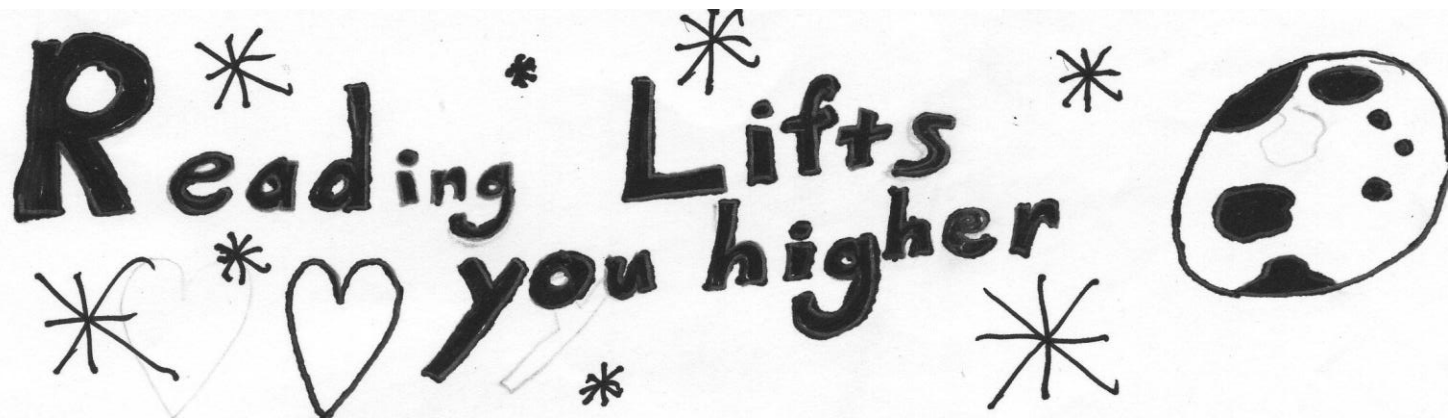 Reading Lifts
you higher